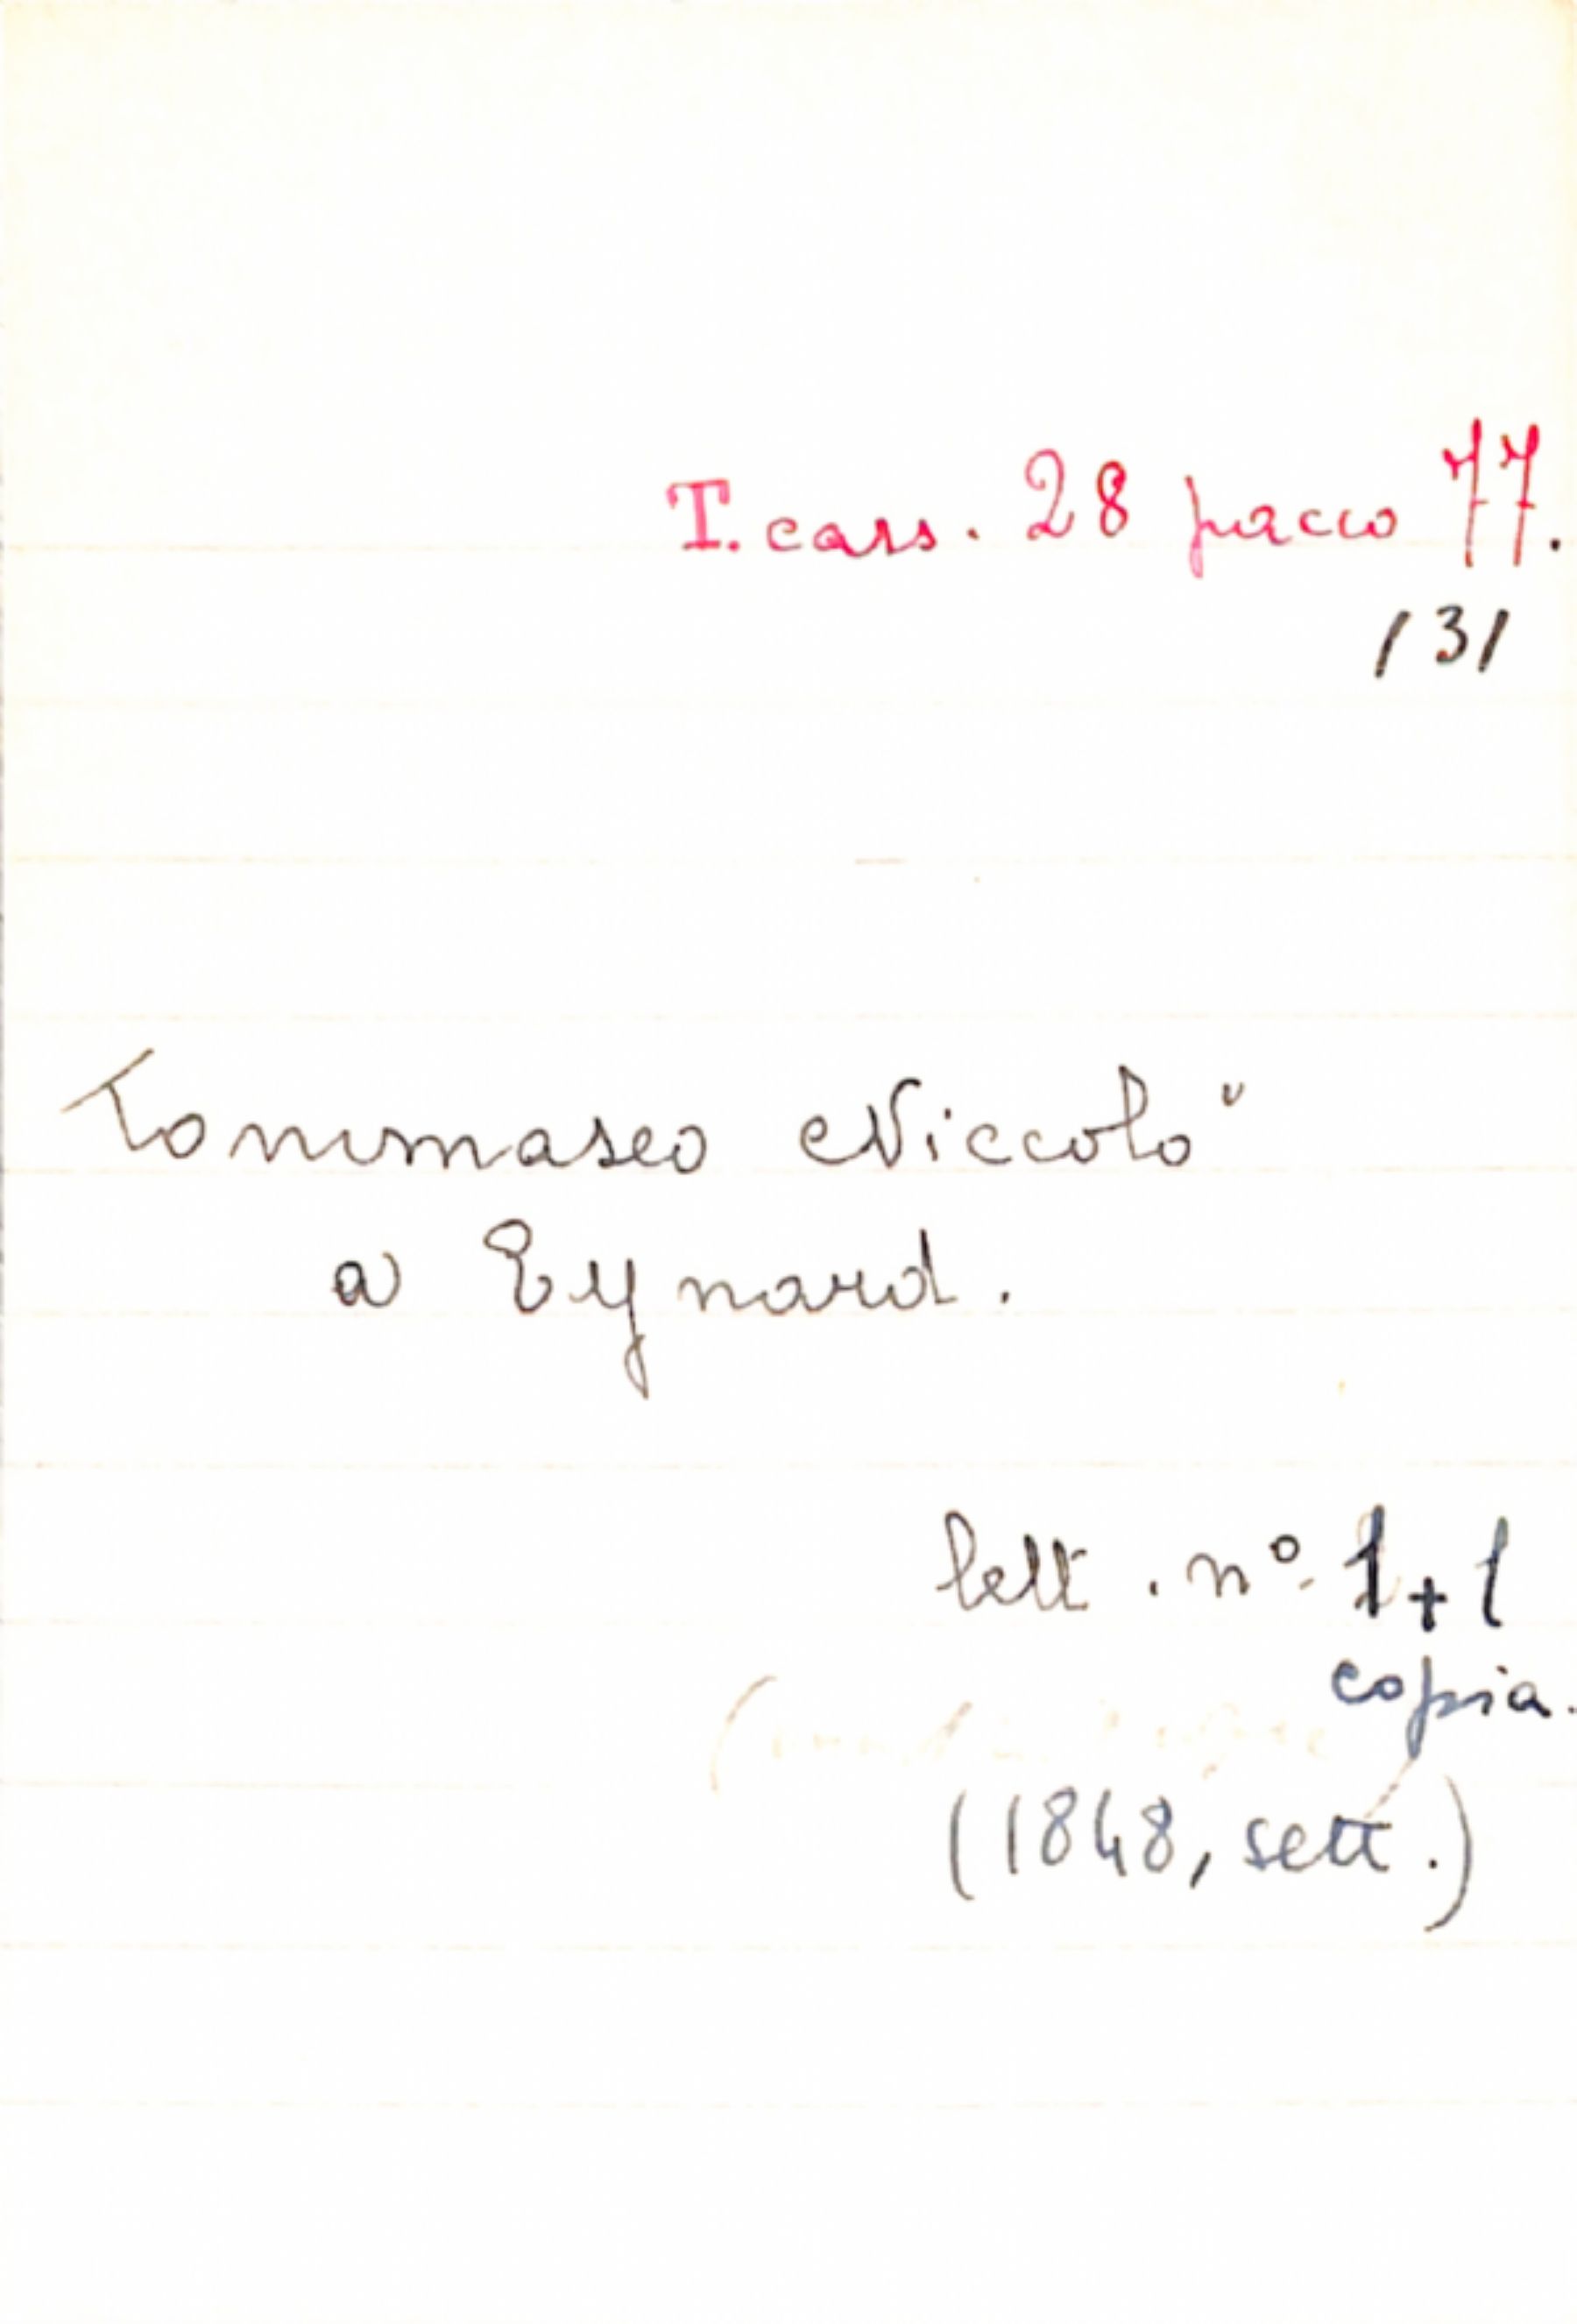 T. cass. 28 pacco 77.
131
Tommaseo Niccolò
a Eynard.
lett. nº. 1+1
copia.
(1848, sett.)